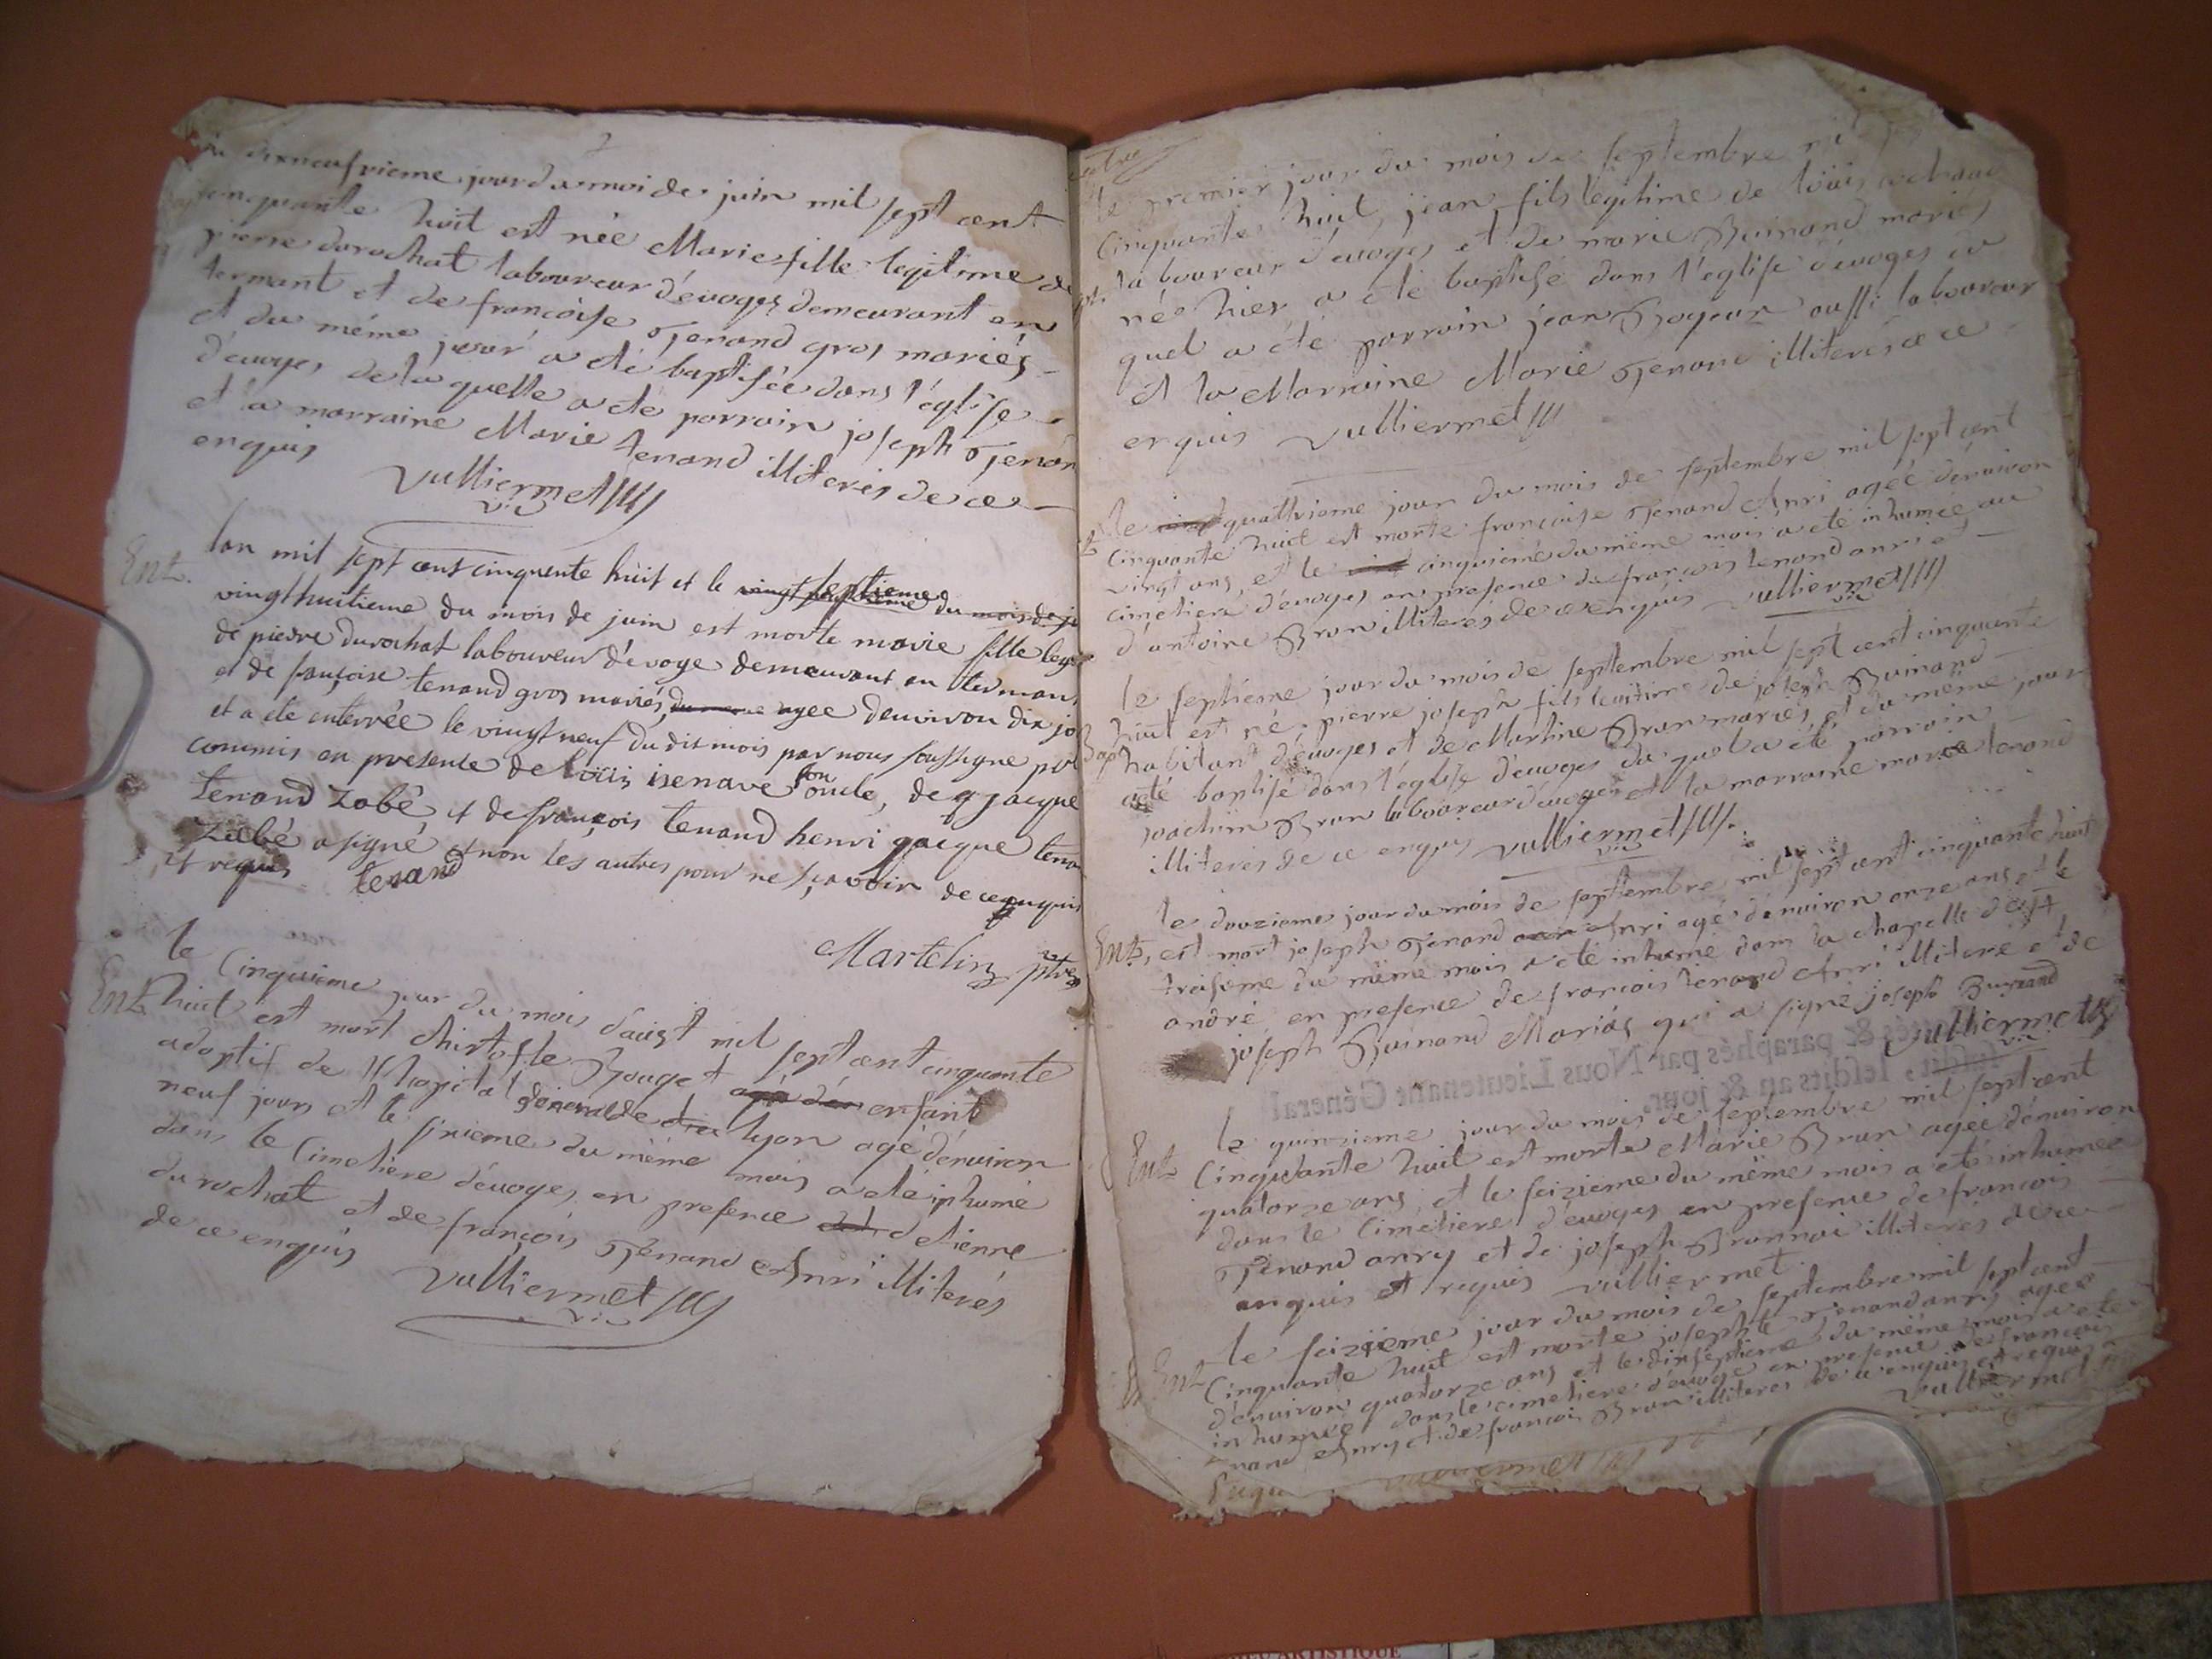 dixneufvieme jour du moi de juin mil sept cent
cinquante huit est née Marie fille legitime de
pierre durochat laboureur d'évoges demeurant en
termant et de françoise Tenand gros mariés
et du méme jour a été baptisée dans l'église
d'évoges de la quelle a été parrain joseph Tenan
et la marraine Marie tenand illiterés de ce
enquis Vulliermet
vic
Ent. lan mil sept cent cinquante huit et le vingt septieme du mois de ju
vingthuitieme du mois de juin est morte marie fille legi
de pierre durochat laboureur d'évoge demeurant en terman
et de françoise tenand gros mariés, agee denviron dix jo
et a été enterrée le vingt neuf du dit mois par nous soussigne
commis en presence de loüis son oncle, de jacque
tenand Zabé et de françois tenand henri jacque tenan
Zabé a signé et non les autres pour ne sçavoir de ce enquis
et requis tenand
Martelin ptre
le Cinquieme jour du mois d'aust mil sept cent cinquante
Ent. huit est mort Christofle Bouget enfant
adoptif de l'hopital géneral de lyon agé d'énviron
neuf jours et le sixieme du même mois a été inhumé
dans le Cimetière d'évoges, en presence d'etienne
durochat et de françois Tenand Anri illiterés
de ce enquis Vulliermet
vic
le premier jour du mois de septembre mil
Cinquante huit, jean fils légitime de loüis
laboureur d'évoges et de marie Buinand mariés
né hier a été baptisé dans l'église d'évoges du
quel a été parrain jean aussi laboureur
et la Marraine Marie Tenand illiterés de ce
enquis Vulliermet
le quattrieme jour du mois de septembre mil sept cent
cinquante huit est morte françoise Tenand Anri agée d'énviron
vingt ans, et le cinquieme du même mois a été inhumée au
cimetiere d'évoges en presence de françois tenand anri et
d'antoine Brun illiterés de ce enquis Vulliermet
vic
le septiéme jour du mois de septembre mil sept cent cinquante
huit est né, pierre joseph fils legitime de joseph Buinand
Bap. habitant d'évoges et de Martine Brun mariés, et du même jour
a été baptisé dans l'église d'évoges du quel a été parrain
joachim Brun laboureur d'évoges et la marraine marie tenand
illiterés de ce enquis Vulliermet
vic
le douzieme jour du mois de septembre mil sept cent cinquante huit
Ent. est mort joseph Tenand Anri agé d'énviron onze ans et le
traisieme du même mois a été inhumé dans la chapelle de st
andré en presence de françois tenand Anri illiteré et de
joseph Buinand Mariás qui a signé joseph Buynand
Vulliermet
vic
paraphés par Nous Lieutenant Général
susdit, lesdits an & jour
le quinzieme jour du mois de septembre mil sept cent
Ent. Cinquante huit est morte Marie Brun agée d'énviron
quatorze ans, et le seizieme du même mois a été inhumée
dans le Cimetiere d'évoges en presence de françois
Tenand anry et de joseph illiterés de ce
enquis et requis Vulliermet
le seizïeme jour du mois de septembre mil sept cent
Ent. Cinquante huit est morte josephte Tenand anry agée
d'énviron quatorze ans et le dixseptieme du même mois a été
inhumée dans le cimetiere d'évoge en presence de françois
nand Anry et de françois Brun illiteres de ce enquis et requis
Vulliermet
vulliermet